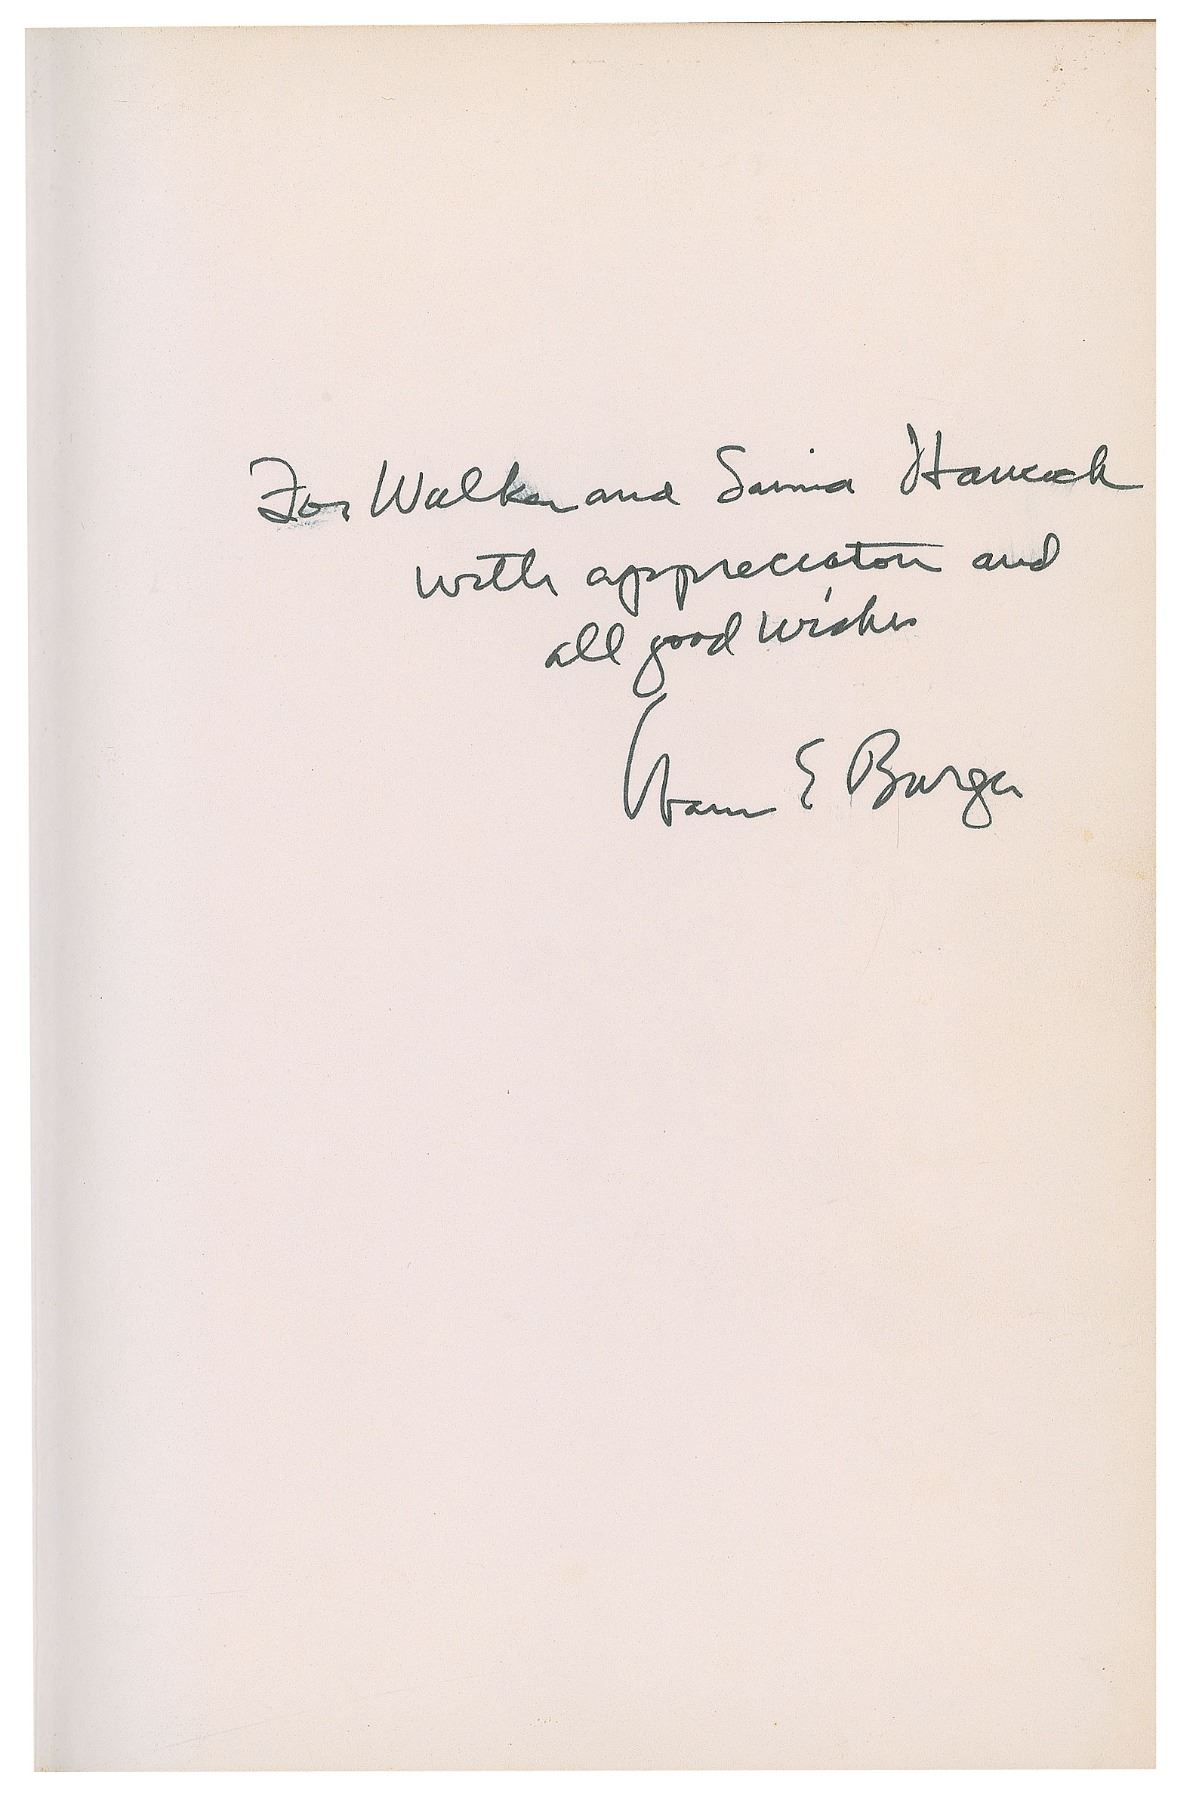 For Walker and Saima Hancock
with appreciation and
all good wishes
Warren E Burger